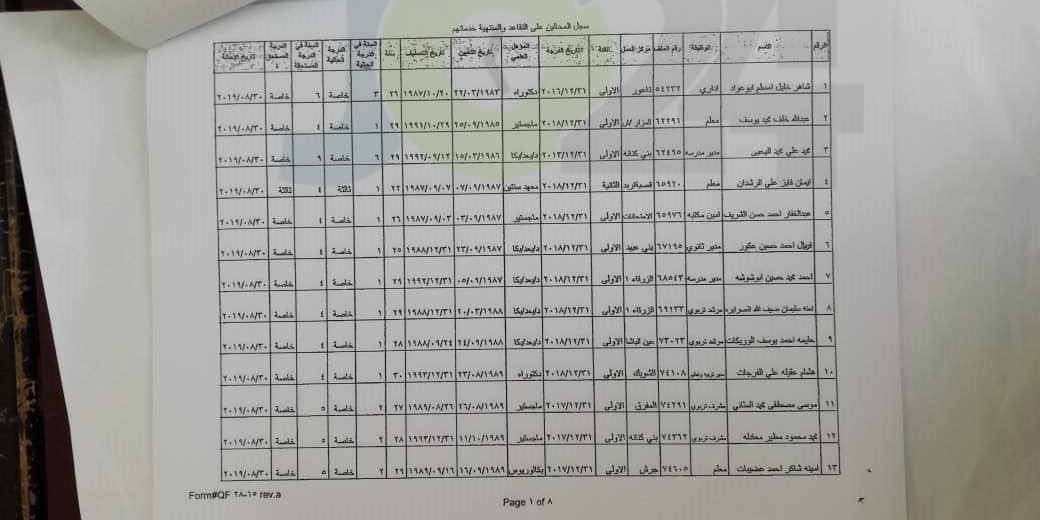 سجل المحالين على التقاعد والمنتهية خدماتهم
الرقم الاسم الوظيفة رقم الملف مركز العمل الفئة تاريخ الدرجة المؤهل العلمي تاريخ التعيين تاريخ التصنيف سنة السنة في الدرجة الحالية الدرجة الحالية السنة في الدرجة المستحقة الدرجة المستحق تاريخ الإحالة
١ شاهر خليل اسطم ابوعواد اداري ٥٤٢٣٢ ناعور الاولى ٢٠١٦/١٢/٣١ دكتوراه ٢٢/٠٣/١٩٨٣ ١٩٨٧/١٠/٢٠ ٢٦ ٣ خاصة ٦ خاصة ٢٠١٩/٠٨/٣٠
٢ عبدالله خلف محمد يوسف معلم ٦٢٢٩١ المزار /ش الاولى ٢٠١٨/١٢/٣١ ماجستير ٢٥/٠٩/١٩٨٥ ١٩٩١/١٠/٢٩ ٢٩ ١ خاصة ٤ خاصة ٢٠١٩/٠٨/٣٠
٣ محمد علي محمد اليحيى مدير مدرسه ٦٢٤٩٥ بني كنانه الاولى ٢٠١٣/١٢/٣١ ١٥/٠٣/١٩٨٦ ١٩٩٢/٠٩/١٢ ٢٩ ٦ خاصة ٩ خاصة ٢٠١٩/٠٨/٣٠
٤ ايمان فايز علي الرشدان معلم ٦٥٩٢٠ قصبةاربد الثانية ٢٠١٨/١٢/٣١ معهد سنتين ٠٧/٠٩/١٩٨٧ ١٩٨٧/٠٩/٠٧ ٢٢ ١ ثالثة ٤ ثالثة ٢٠١٩/٠٨/٣٠
٥ عبدالغفار احمد حسن الشريف امين مكتبه ٦٥٩٧٦ الامتحانات الاولى ٢٠١٨/١٢/٣١ ماجستير ٠٣/٠٩/١٩٨٧ ١٩٨٧/٠٩/٠٣ ٢٦ ١ خاصة ٤ خاصة ٢٠١٩/٠٨/٣٠
٦ فريال احمد حسين عكور مدير ثانوي ٦٧١٩٥ بني عبيد الاولى ٢٠١٨/١٢/٣١ ٢٣/٠٩/١٩٨٧ ١٩٨٨/١٢/٣١ ٢٥ ١ خاصة ٤ خاصة ٢٠١٩/٠٨/٣٠
٧ احمد محمد حسين ابوشوشه مدير مدرسه ٦٨٥٤٣ الزرقاء ١ الاولى ٢٠١٨/١٢/٣١ ٠٥/٠٩/١٩٨٧ ١٩٩٢/١٢/٣١ ٢٩ ١ خاصة ٤ خاصة ٢٠١٩/٠٨/٣٠
٨ امنه سليمان ضيف الله الصرايره مرشد تربوي ٦٩١٣٣ الزرقاء ١ الاولى ٢٠١٨/١٢/٣١ ٢٠/٠٣/١٩٨٨ ١٩٨٨/١٢/٣١ ٢٩ ١ خاصة ٤ خاصة ٢٠١٩/٠٨/٣٠
٩ حليمه احمد يوسف الوريكات مرشد تربوي ٧٣٠٢٣ عين الباشا الاولى ٢٠١٨/١٢/٣١ ٢٤/٠٩/١٩٨٨ ١٩٨٨/٠٩/٢٤ ٢٨ ١ خاصة ٤ خاصة ٢٠١٩/٠٨/٣٠
١٠ هشام عقله علي الفرجات ٧٤١٠٨ الشوبك الاولى ٢٠١٨/١٢/٣١ دكتوراه ٢٣/٠٨/١٩٨٩ ١٩٩٣/١٢/٣١ ٣٠ ١ خاصة ٤ خاصة ٢٠١٩/٠٨/٣٠
١١ موسى مصطفى محمد المثاني مشرف تربوي ٧٤٢٩١ المفرق الاولى ٢٠١٧/١٢/٣١ ماجستير ٢٦/٠٨/١٩٨٩ ١٩٨٩/٠٨/٢٦ ٢٧ ٢ خاصة ٥ خاصة ٢٠١٩/٠٨/٣٠
١٢ محمد محمود مطير معادله مشرف تربوي ٧٤٣٦٢ بني كنانه الاولى ٢٠١٧/١٢/٣١ ماجستير ١١/١٠/١٩٨٩ ١٩٩٣/١٢/٣١ ٢٨ ٢ خاصة ٥ خاصة ٢٠١٩/٠٨/٣٠
١٣ امينه شاكر احمد عضيبات معلم ٧٤٦٠٥ جرش الاولى ٢٠١٧/١٢/٣١ بكالوريوس ١٦/٠٩/١٩٨٩ ١٩٨٩/٠٩/١٦ ٢٩ ٢ خاصة ٥ خاصة ٢٠١٩/٠٨/٣٠
Form#QF ٢٨-١٥ rev.a
Page ١ of ٨